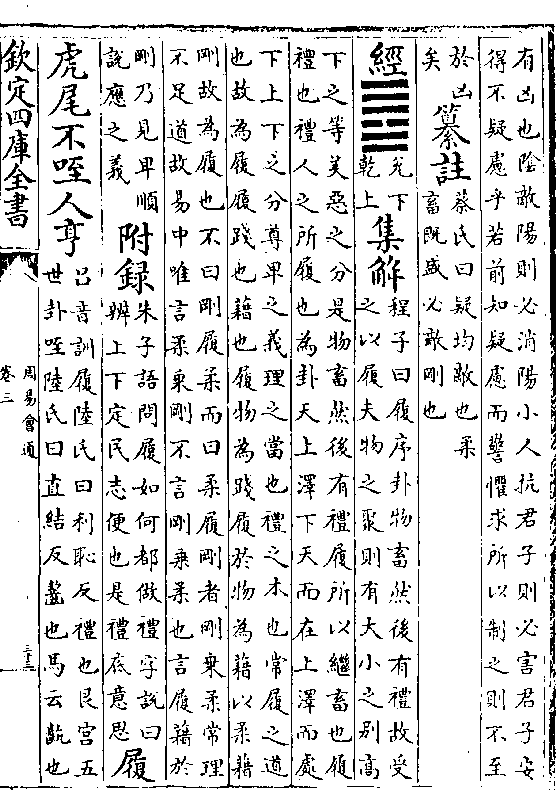 有凶也陰敵陽則必消陽小人抗君子則必害君子安
得不疑慮乎若前知疑慮而警懼求所以制之則不至
於凶
矣
纂註
蔡氏曰疑均敵也柔
畜既盛必敵剛也
經
兌下
乾上
集解
程子曰履序卦物畜然後有禮故受
之以履夫物之聚則有大小之别高
下之等美惡之分是物畜然後有禮履所以繼畜也履
禮也禮人之所履也為卦天上澤下天而在上澤而處
下上下之分尊卑之義理之當也禮之本也常履之道
也故為履履踐也藉也履物為踐履於物為藉以柔藉
剛故為履也不曰剛履柔而曰柔履剛者剛乗柔常理
不足道故易中唯言柔乗剛不言剛乗柔也言履藉於
剛乃見卑順
說應之義
附録
朱子語問履如何都做禮字說曰
辨上下定民志便也是禮底意思
履
虎尾不咥人亨
吕音訓履陸氏曰利恥反禮也艮宮五
世卦咥陸氏曰直結反齧也馬云齕也
欽定四庫全書
周易會通
卷三
三十三